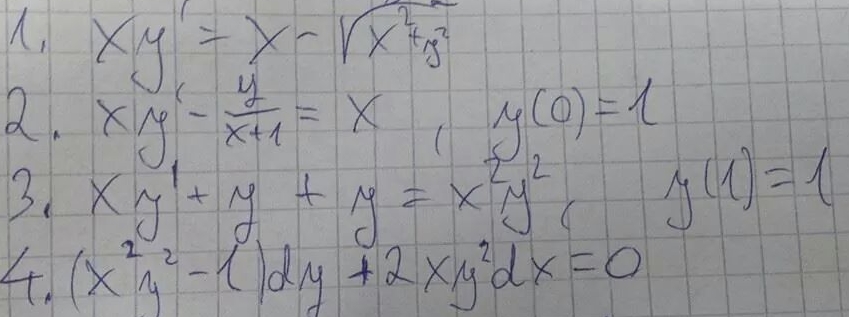 1. xy' = x - √(x²+y²)
2. xy' - y/(x+1) = x , y(0)=1
3. xy' + y + y = x²y² , y(1)=1
4. (x²y² - 1)dy + 2xy²dx = 0